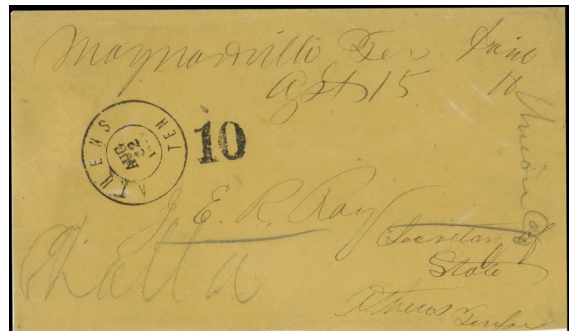 Maynardville Ten
Agst 15
Union Co
ATHENS TEN
AUG
22
10
J. E. R. Ray
Secretary of
State
Athens